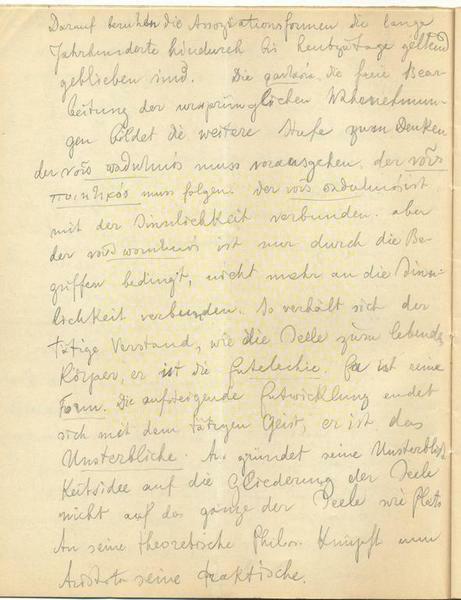 Darauf beruhen die Assoziationsformen die lange
Jahrhunderte hindurch bis heutzutage geltend
geblieben sind. Die φαντασία, die freie Bear-
beitung der ursprünglichen Wahrnehmun-
gen bildet die weitere Stufe zum Denken
der νοῦς παθητικός muss vorausgehen, der νοῦς
ποιητικός muss folgen. Der νοῦς παθητικός ist
mit der Sinnlichkeit verbunden. aber
der νοῦς ποιητικός ist nur durch die Be-
griffen bedingt, nicht mehr an die Sinn-
lichkeit verbunden. So verhält sich der
tätige Verstand, wie die Seele zum lebend.
Körper, er ist die Entelechie. Er ist reine
Form. Die aufsteigende Entwicklung endet
sich mit dem tätigen Geist, er ist das
Unsterbliche. Ar. gründet seine Unsterblich
keitsidee auf die Gliederung der Seele
nicht auf das ganze der Seele wie Plato
An seine theoretische Philos. knüpft nun
Aristot. seine praktische.